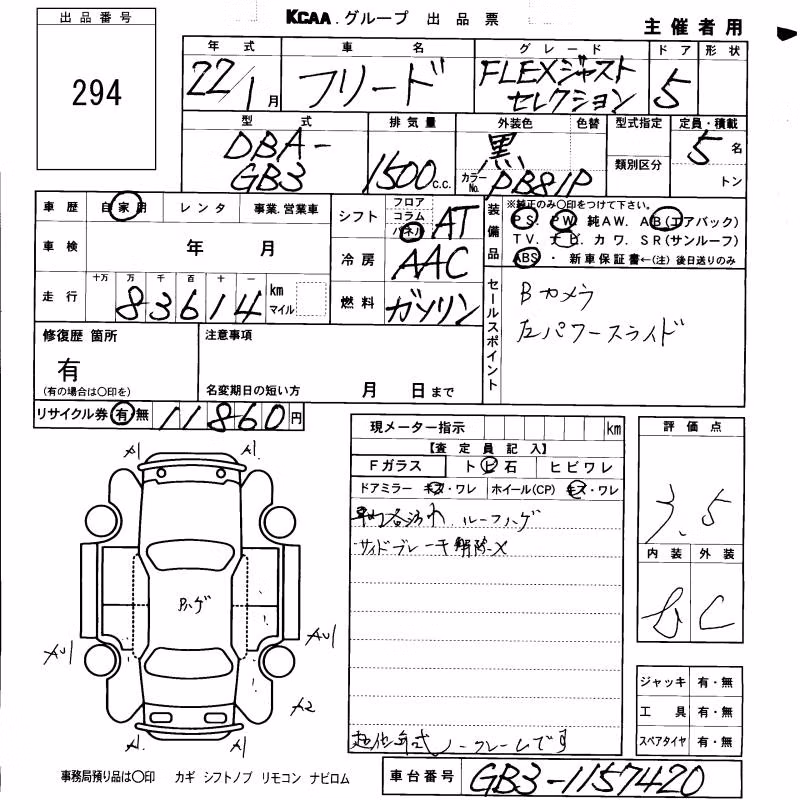 出品番号
294
KCAA.グループ 出品票
主催者用
年式 車名 グレード ドア 形状
22/1月 フリード FLEXジャスト
セレクション 5
型式 排気量 外装色 色替 型式指定 定員・積載
DBA-
GB3 1500c.c. 黒 5名
カラーNo. PB81P 類別区分 トン
車歴 自家用 レンタ 事業.営業車
車検 年 月
走行 十万 万 千 百 十 一
83614 km
マイル
シフト フロア
コラム
パネル AT
冷房 AAC
燃料 ガソリン
装備品 ※純正のみ〇印をつけて下さい。
PS. PW. 純AW. AB(エアバック)
TV. ナビ. カワ. SR(サンルーフ)
ABS ・ 新車保証書←(注)後日送りのみ
セールスポイント
Bカメラ
左パワースライド
修復歴 箇所
有
(有の場合は〇印を)
注意事項
名変期日の短い方 月 日まで
リサイクル券 有・無 11860円
現メーター指示 km
【査定員記入】
Fガラス ト ビ 石 ヒビワレ
ドアミラー キズ・ワレ ホイール(CP) キズ・ワレ
ルーフハゲ
サイドブレーキ解除X
ノークレームです
評価点
3.5
内装 外装
C
ジャッキ 有・無
工具 有・無
スペアタイヤ 有・無
A1 A1
Pハゲ
AU1 AU1
A2
A1 A1
事務局預り品は〇印 カギ シフトノブ リモコン ナビロム
車台番号 GB3-1157420